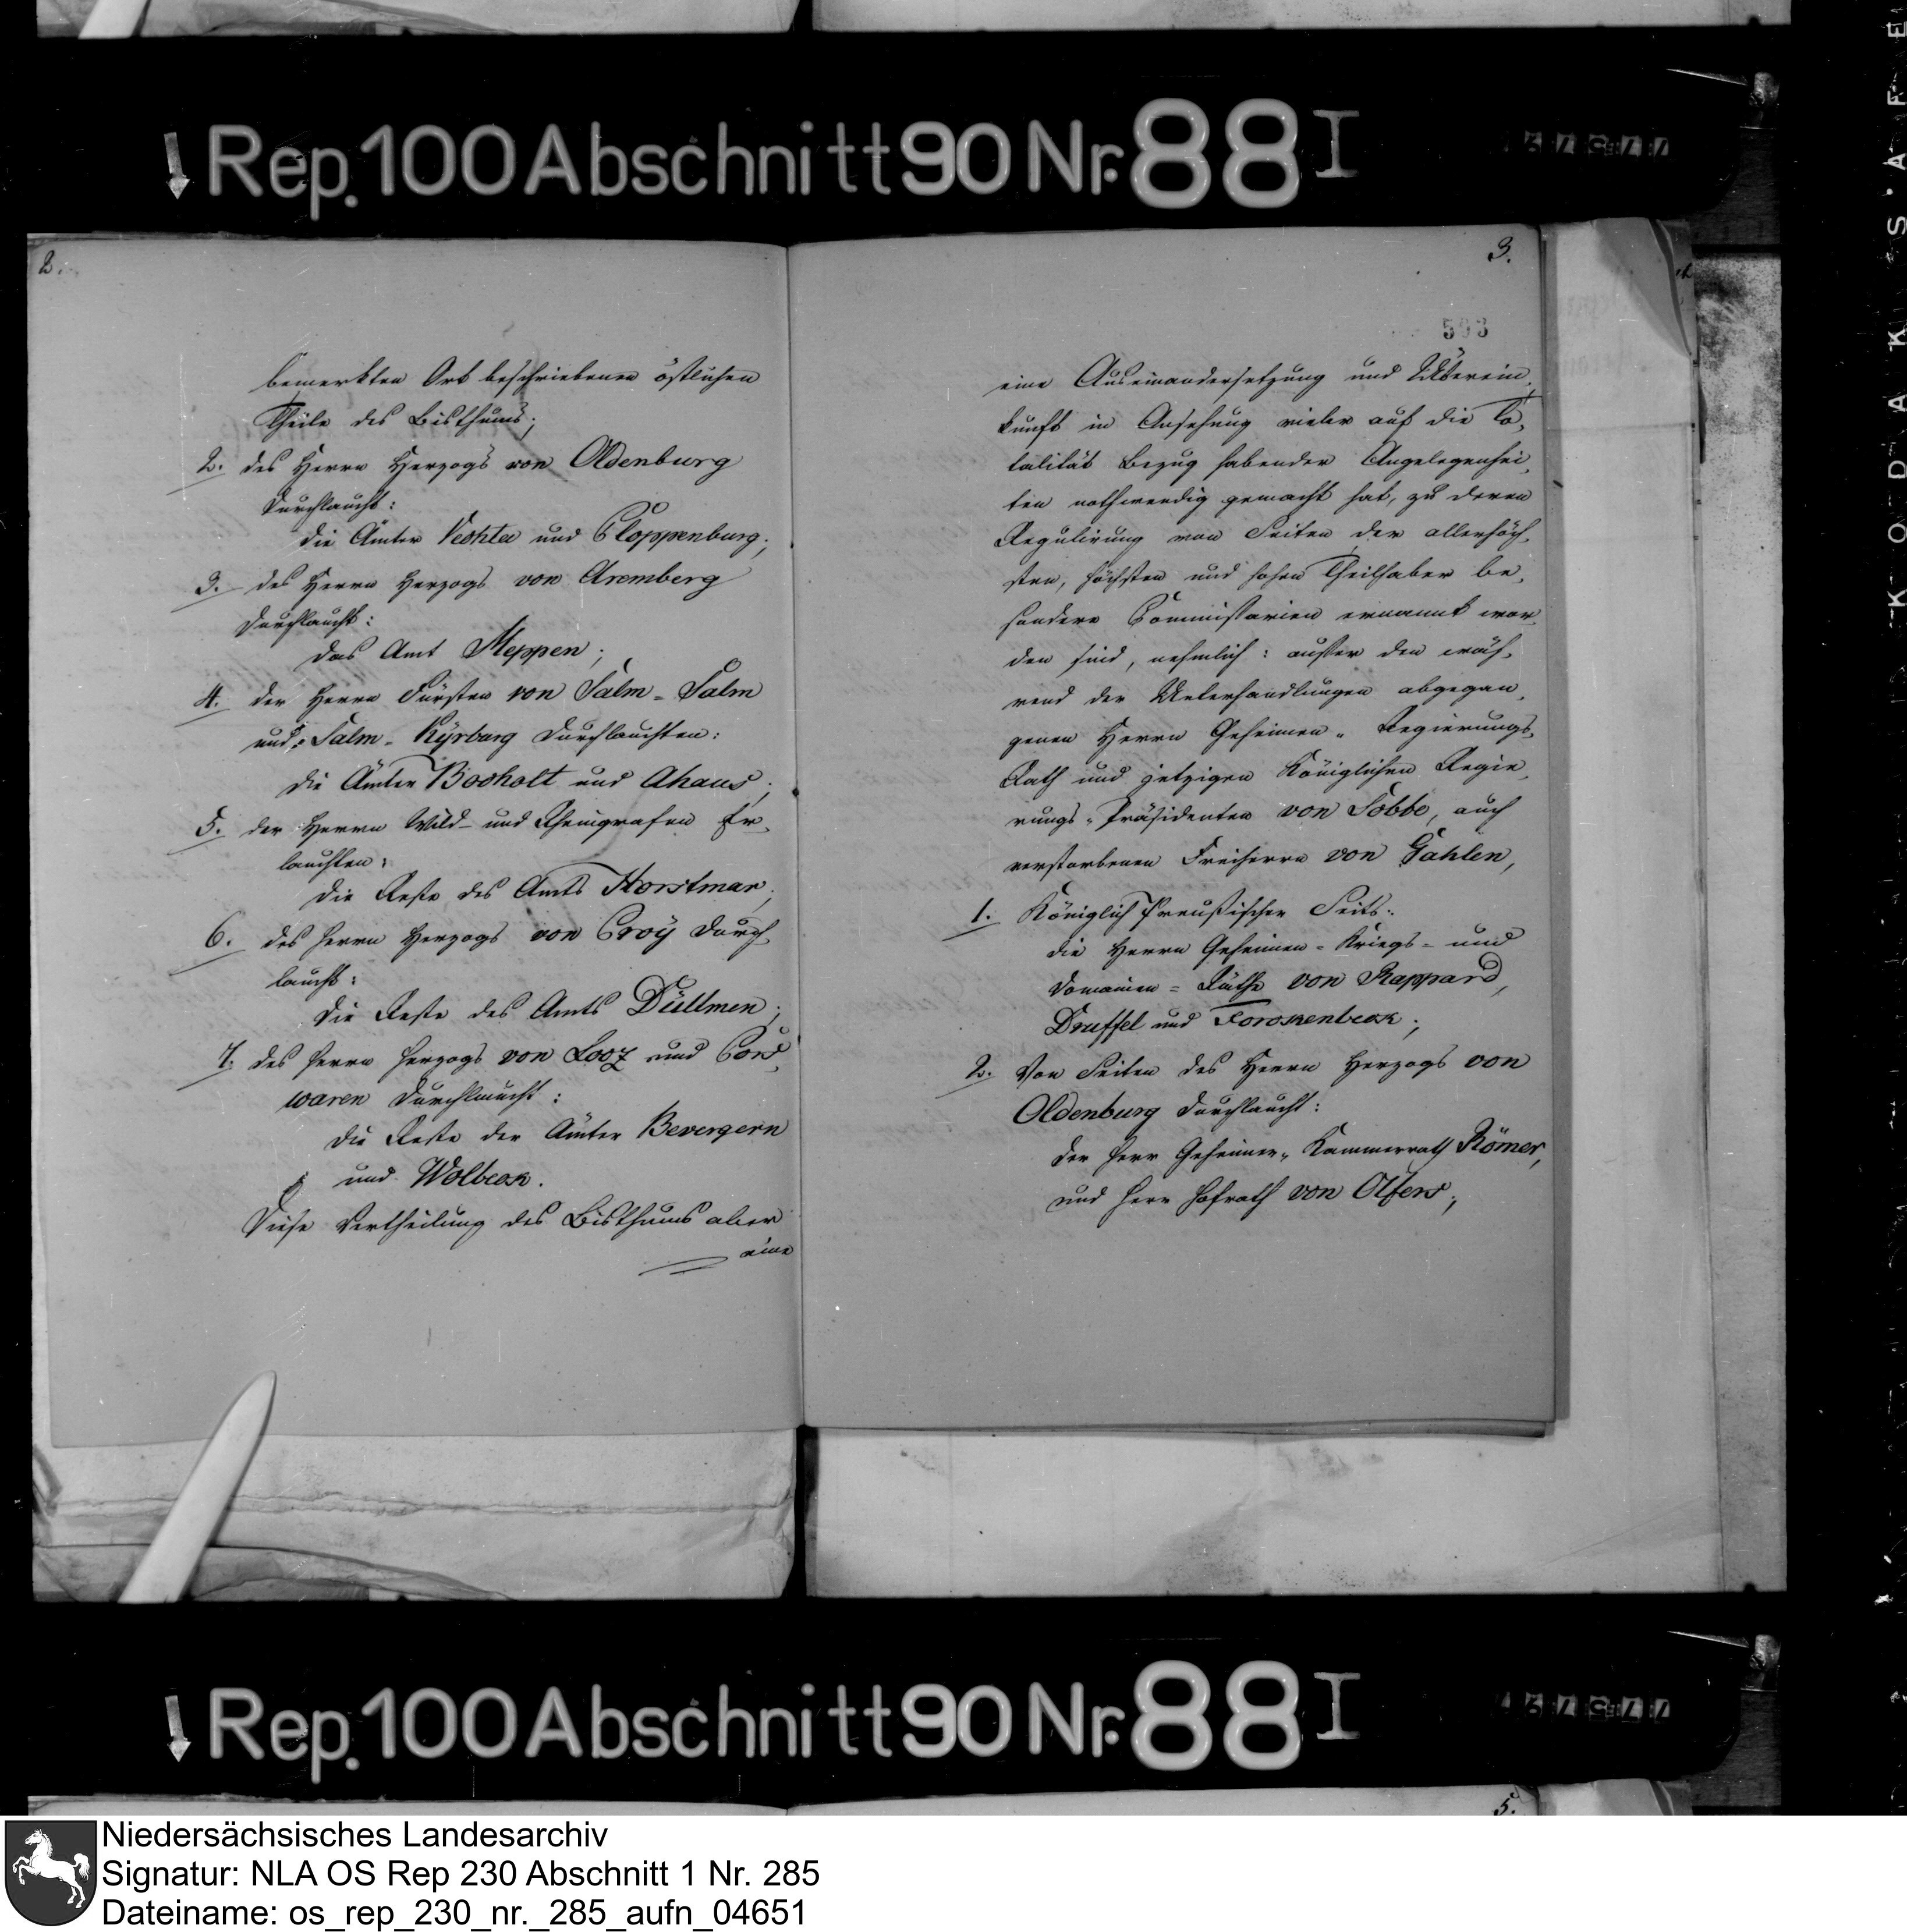 Rep. 100 Abschnitt 90 Nr. 88 I
2.
bemerkten Ort beschriebenen östlichen
Theile des Bisthums;
2. des Herrn Herzogs von Oldenburg
Durchlaucht:
die Ämter Vechta und Cloppenburg;
3. des Herrn Herzogs von Aremberg
Durchlaucht:
das Amt Meppen;
4. der Herrn Fürsten von Salm-Salm
und Salm-Kÿrburg Durchlauchten:
die Ämter Bocholt und Ahaus;
5. der Herrn Wild- und Rheingrafen Er-
lauchten:
die Reste des Amts Horstmar;
6. des Herrn Herzogs von Croÿ Durch-
laucht:
die Reste des Amts Düllmen;
7. des Herrn Herzogs von Looz und Cors-
waren Durchlaucht:
die Reste der Ämter Bevergern
und Wolbeck.
Diese Vertheilung des Bisthums aber
eine
3.
593
eine Auseinandersetzung und Überein-
kunft in Ansehung vieler auf die To-
talität Bezug habender Angelegenhei-
ten nothwendig gemacht hat, zu deren
Regulirung von Seiten der allerhöch-
sten, höchsten und hohen Theilhaber be-
sondere Commissarien ernannt wor-
den sind, nehmlich: ausser den wäh-
rend der Unterhandlungen abgegan-
genen Herrn Geheimen-Regierungs-
Rath und jetzigen Königlichen Regie-
rungs-Präsidenten von Sobbe, auch
verstorbenen Freiherrn von Gahlen,
1. Königlich Preußischer Seits:
die Herrn Geheimen-Kriegs- und
Domainen-Räthe von Rappard,
Druffel und Forckenbeck;
2. Von Seiten des Herrn Herzogs von
Oldenburg Durchlaucht:
der Herr Geheimer-Kammerrath Römer,
und Herr Hofrath von Olfers;
Rep. 100 Abschnitt 90 Nr. 88 I
5.
Niedersächsisches Landesarchiv
Signatur: NLA OS Rep 230 Abschnitt 1 Nr. 285
Dateiname: os_rep_230_nr._285_aufn_04651